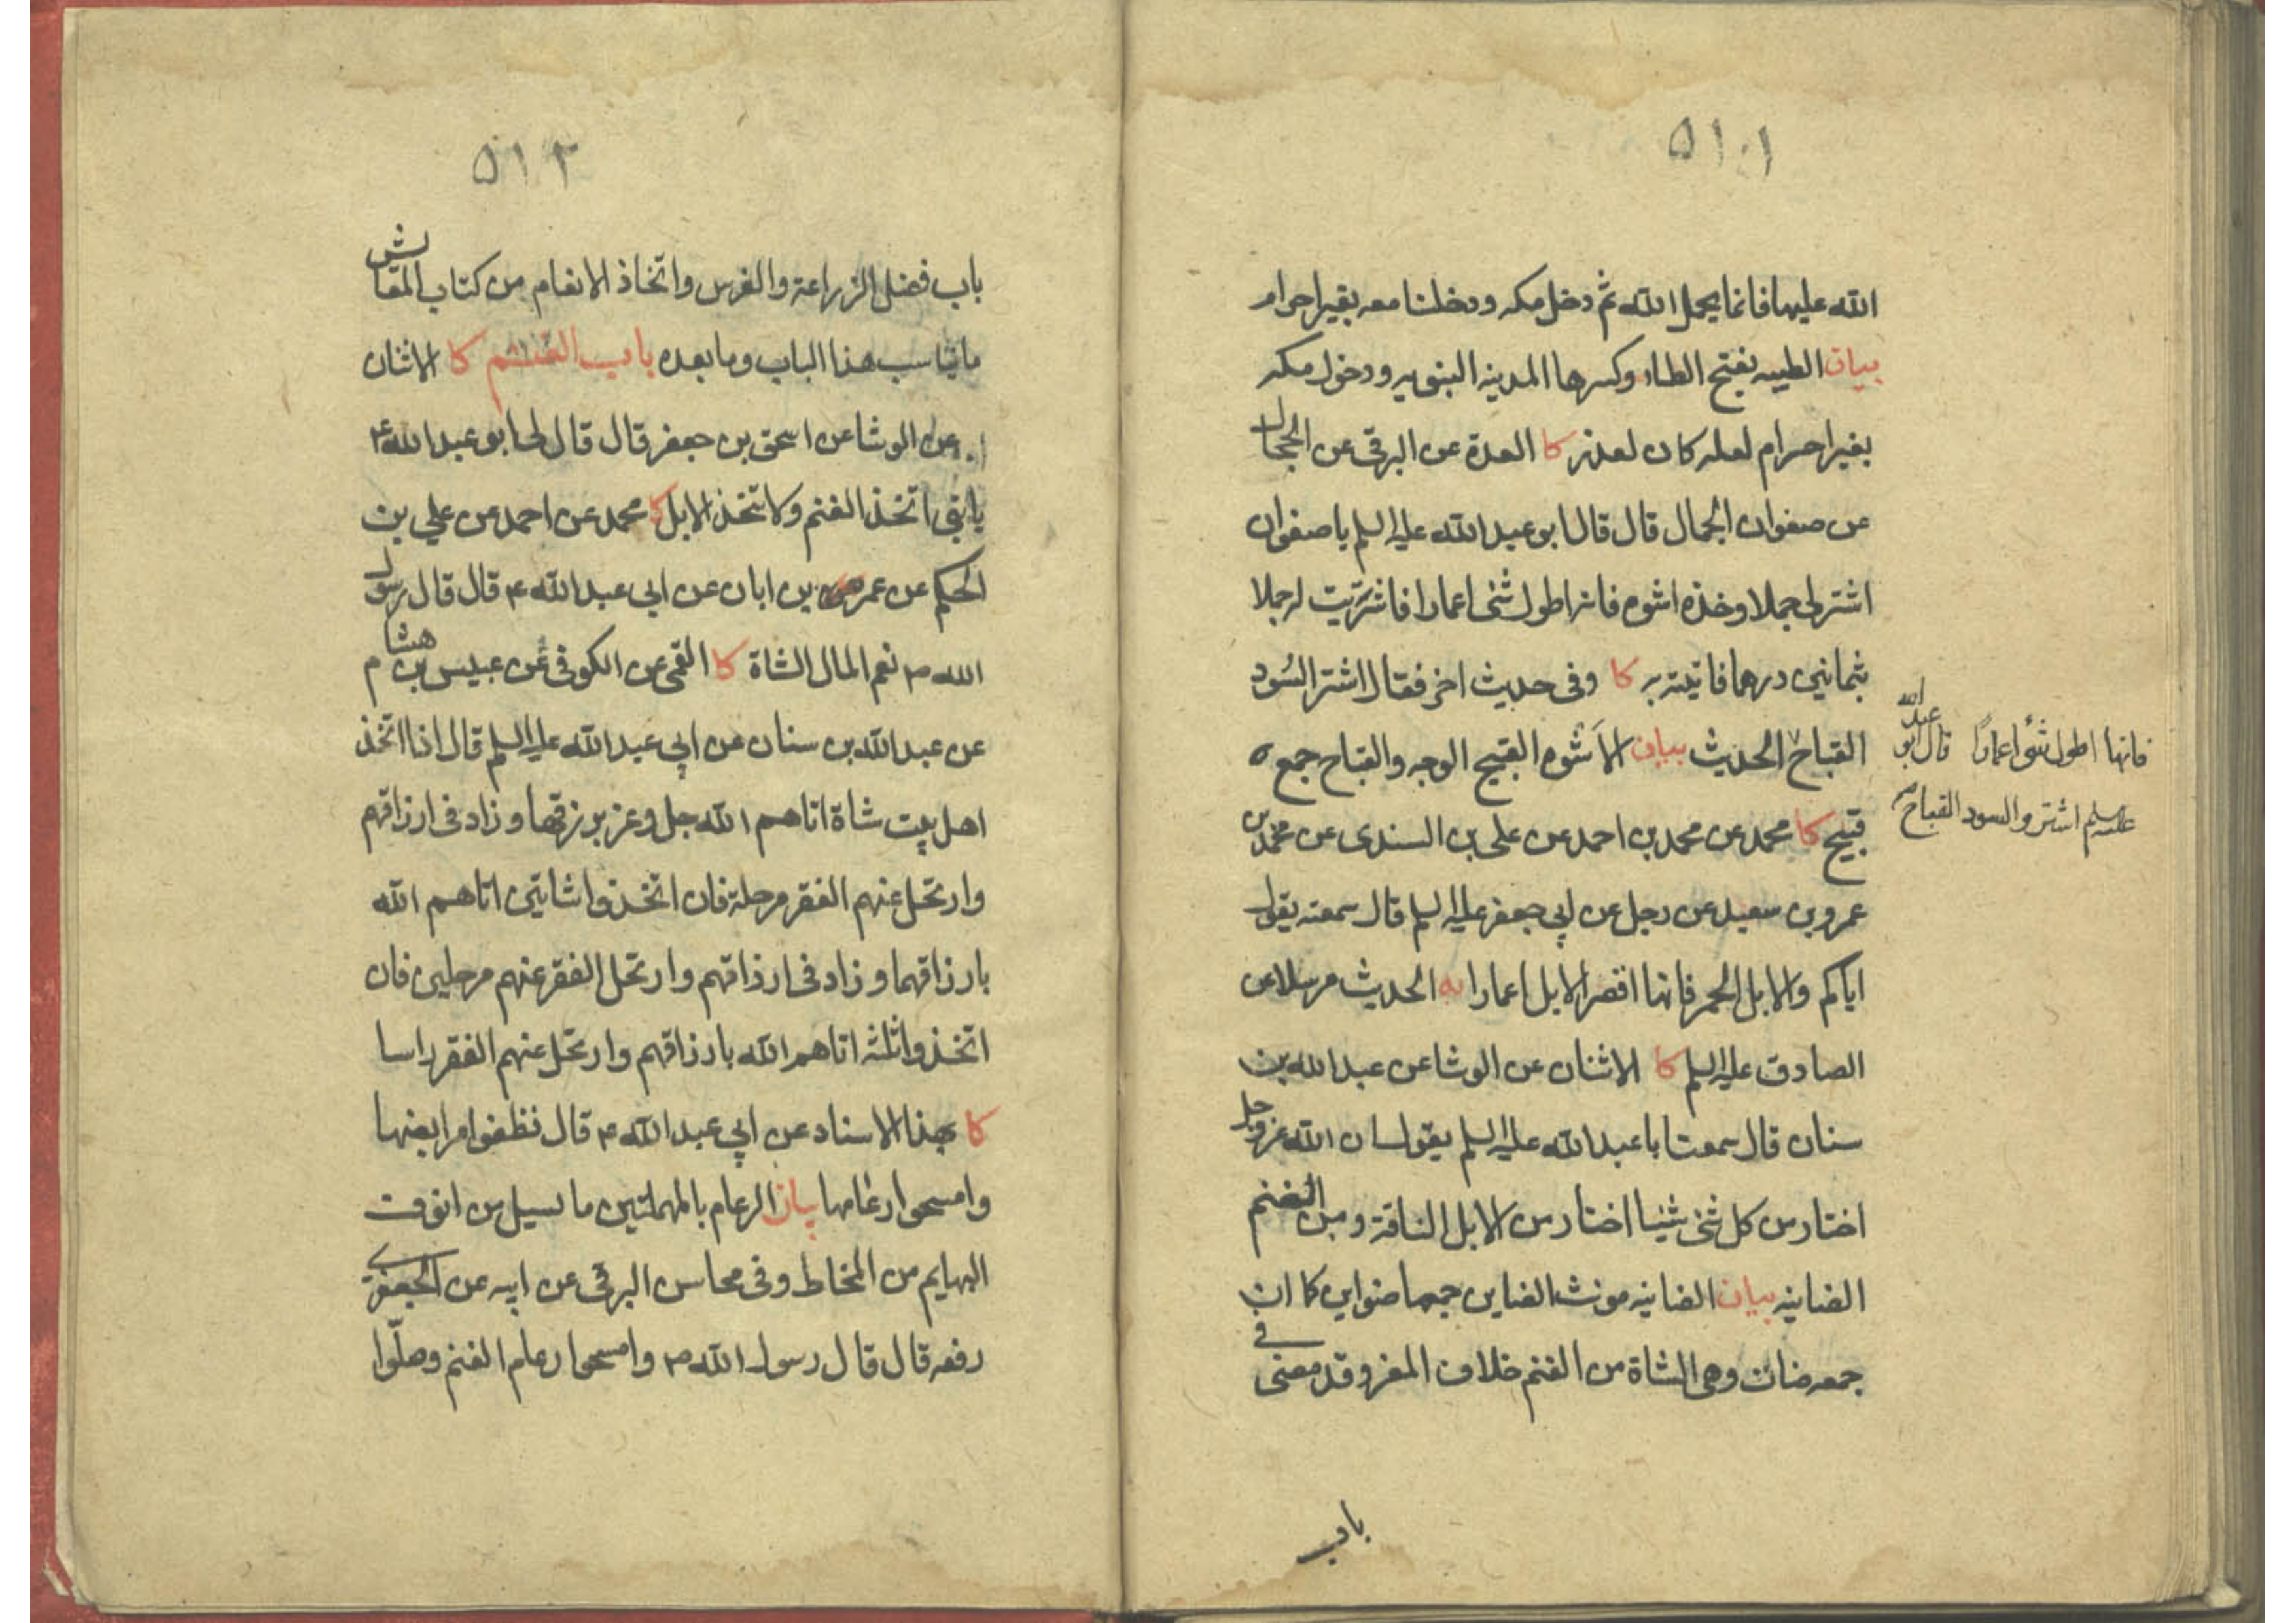 ٥١٠١
الله عليها فانما يحمل الله ثم دخل مكه ودخلنا معه بغير احرام
بيان الطيبه بفتح الطاء وكسرها المدينه النبويه ودخول مكه
بغير احرام لعله كان لعذر كا العدة عن البرقى عن الحجال
عن صفوان الجمال قال قال ابو عبد الله عليه السلم يا صفوان
اشتر لى جملا وخذه اشوه فانه اطول شئ اعمارا فاشتريت له جملا
بثمانين درهما فاتيته به كا وفى حديث اخر فقال اشتر السُود
القباح الحديث بيان الاَشوه القبيح الوجه والقباح جمع
قبيح كا محمد عن محمد بن احمد عن على بن السندى عن محمد بن
عمرو بن سعيد عن رجل عن ابي جعفر عليه السلم قال سمعته يقول
اياكم والابل الحمر فانها اقصر الابل اعمارا يه الحديث مرسلا عن
الصادق عليه السلم كا الاثنان عن الوشا عن عبد الله بن
سنان قال سمعت ابا عبد الله عليه السلم يقول ان الله عز وجل
اختار من كل شئ شيئا اختار من الابل الناقة ومن الغنم
الضاينه بيان الضانيه مونث الضاين جمعها ضواين كا ان
جمعه ضان وهى الشاة من الغنم خلاف المعز وقد معنى فى
باب
فانها اطول شئ اعمارًا قال ابو عبد الله
عليه السلم اشتروا السود القباح
٥١٢
باب فضل الزراعة والغرس واتخاذ الانعام من كتاب المعايش
ما يناسب هذا الباب وما بعده باب الغنم كا الاثنان
عن الوشا عن اسحق بن جعفر قال قال لى ابو عبد الله ع
يا بنى اتخذ الغنم ولا تتخذ الابل كا محمد عن احمد عن علي بن
الحكم عن عمر بن ابان عن ابى عبد الله ع قال قال رسول
الله ص نعم المال الشاة كا القمى عن الكوفى عن عبيس بن هشام
عن عبد الله بن سنان عن ابي عبد الله عليه السلم قال اذا اتخذ
اهل بيت شاة اتاهم الله جل وعز برزقها وزاد فى ارزاقهم
وارتحل عنهم الفقر مرحلة فان اتخذوا شاتين اتاهم الله
بارزاقهما وزاد فى ارزاقهم وارتحل الفقر عنهم مرحلين فان
اتخذوا ثلثه اتاهم الله بارزاقهم وارتحل عنهم الفقر راسا
كا بهذا الاسناد عن ابي عبد الله ع قال نظفوا مرابضها
وامسحوا رغامها بيان الرعام بالمهملتين ما يسيل من انوف
البهايم من المخاط وفى محاسن البرقى عن ابيه عن الجعفرى
رفعه قال قال رسول الله ص وامسحوا رعام الغنم وصلّوا